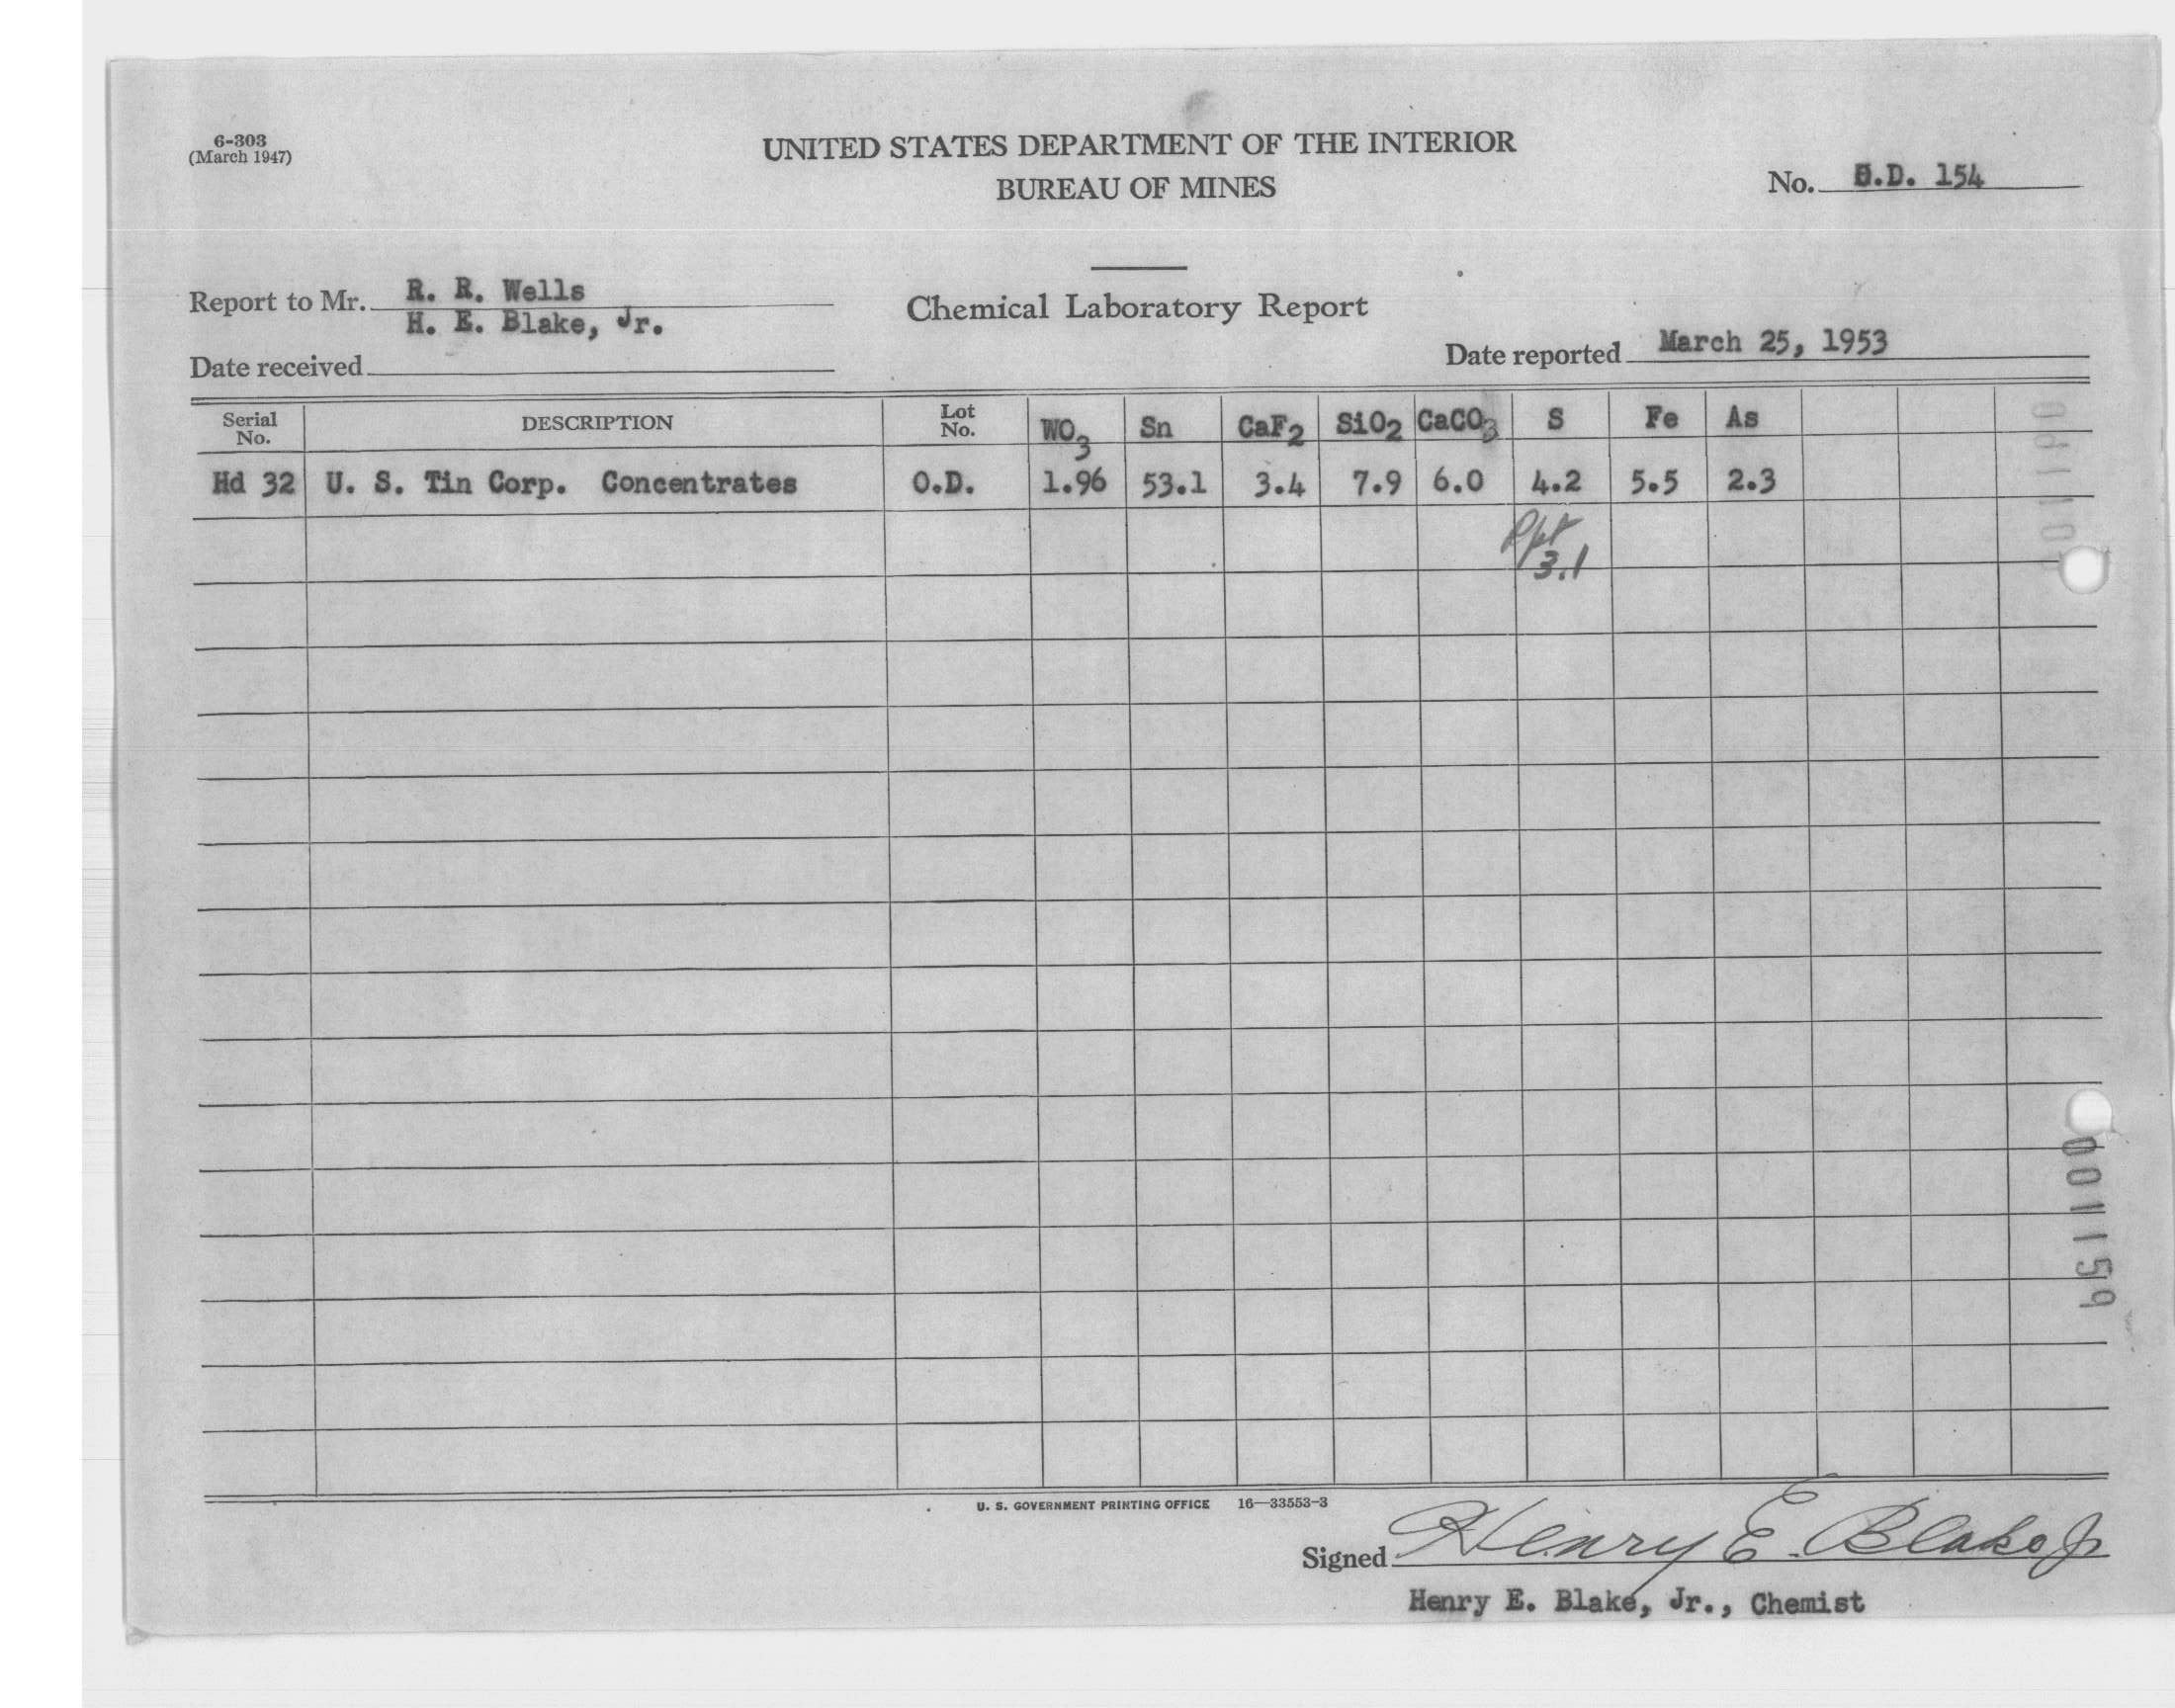 6-303
(March 1947)
UNITED STATES DEPARTMENT OF THE INTERIOR
BUREAU OF MINES
No. O.D. 154
Report to Mr. R. R. Wells
H. E. Blake, Jr.
Chemical Laboratory Report
Date received
Date reported March 25, 1953
Serial No. DESCRIPTION Lot No. WO3 Sn CaF2 SiO2 CaCO3 S Fe As
Hd 32 U. S. Tin Corp. Concentrates O.D. 1.96 53.1 3.4 7.9 6.0 4.2 5.5 2.3
Rpt
3.1
001159
U. S. GOVERNMENT PRINTING OFFICE 16—33553-3
Signed Henry E. Blake Jr
Henry E. Blake, Jr., Chemist